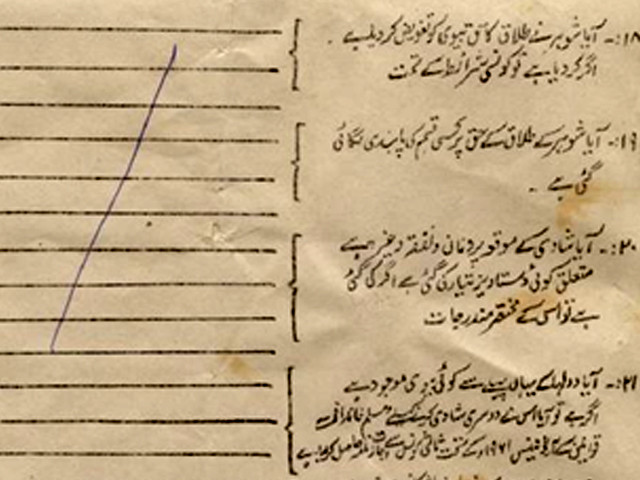 ۱۸:- آیا شوہر نے طلاق کا حق بیوی کو تفویض کر دیا ہے ۔
اگر کر دیا ہے تو کونسی شرائط کے تحت
۱۹:- آیا شوہر کے طلاق کے حق پر کسی قسم کی پابندی لگائی
گئی ہے ۔
۲۰:- آیا شادی کے موقعہ پر و نفقہ وغیرہ سے
متعلق کوئی دستاویز تیار کی گئی ہے اگر کی گئی
ہے تو اس کے مختصر مندرجات
۲۱:- آیا دولہا کے یہاں پہلے سے کوئی بیوی موجود ہے
اگر ہے تو آیا اس نے دوسری شادی کیلئے مسلم
قوانین کے ۱۹۶۱ء کے تحت ثالثی کونسل سے حاصل کر لیا ہے